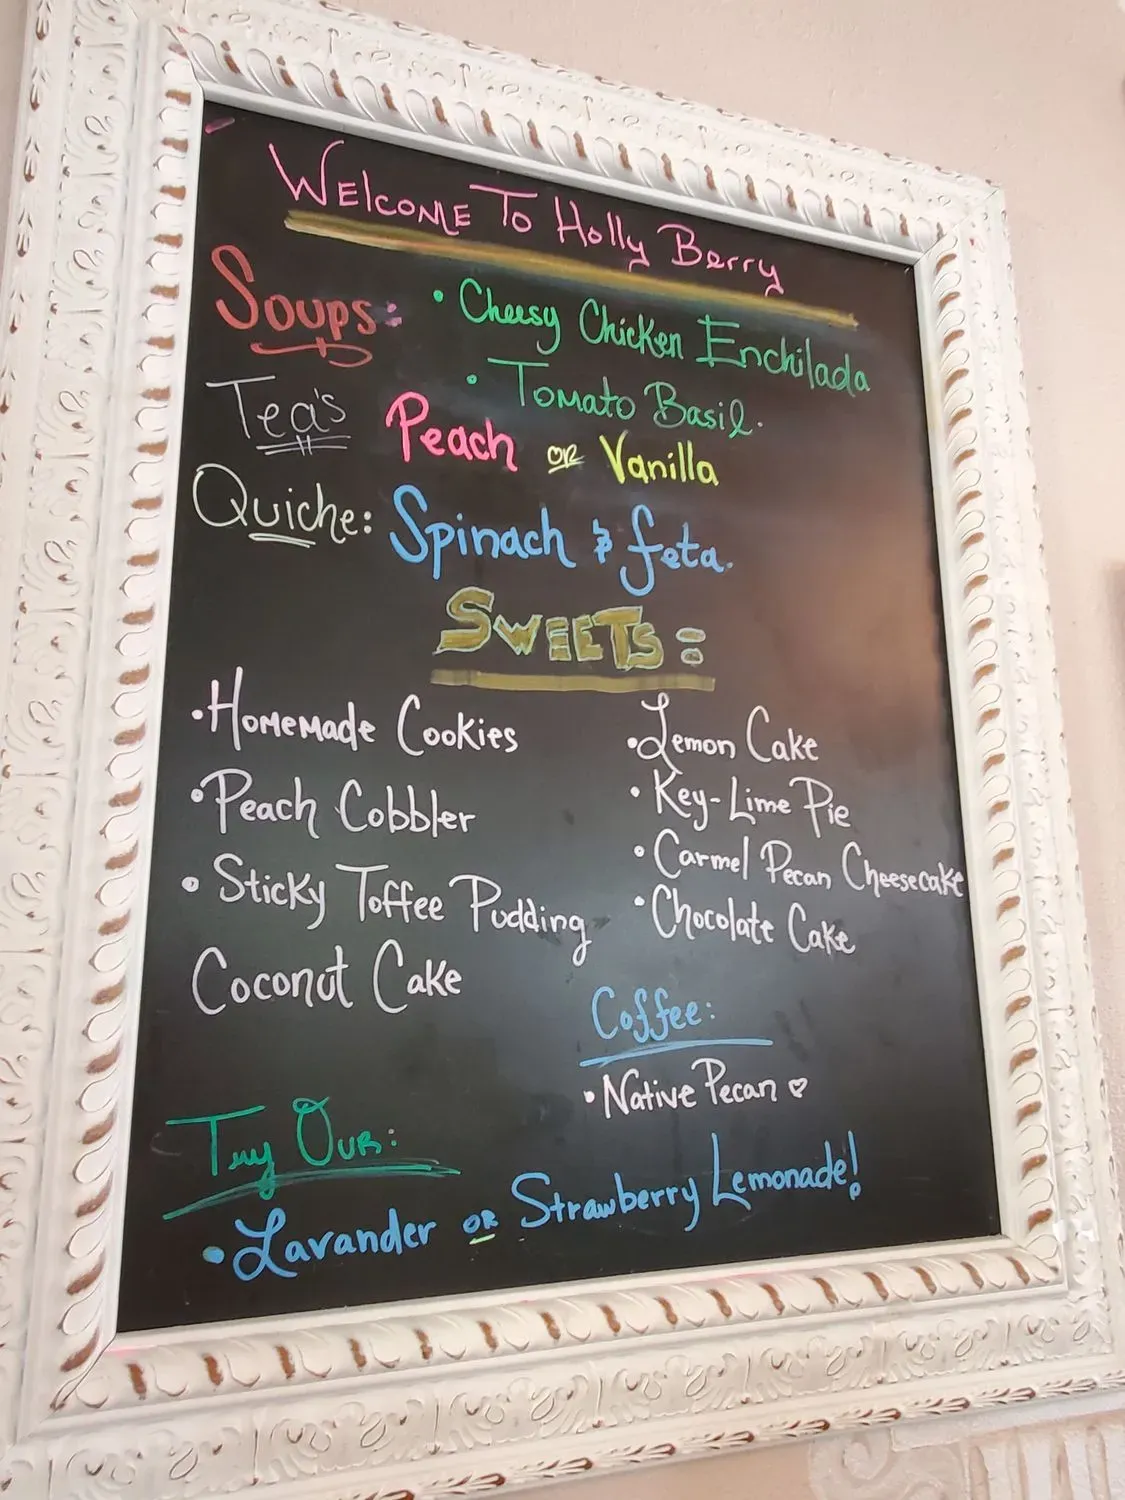 Welcome To Holly Berry
Soups: • Cheesy Chicken Enchilada
• Tomato Basil.
Tea's Peach or Vanilla
Quiche: Spinach & feta.
SWEETS:
• Homemade Cookies
• Peach Cobbler
• Sticky Toffee Pudding
Coconut Cake
• Lemon Cake
• Key-Lime Pie
• Carmel Pecan Cheesecake
• Chocolate Cake
Coffee:
• Native Pecan ♡
Try Our:
• Lavander or Strawberry Lemonade!